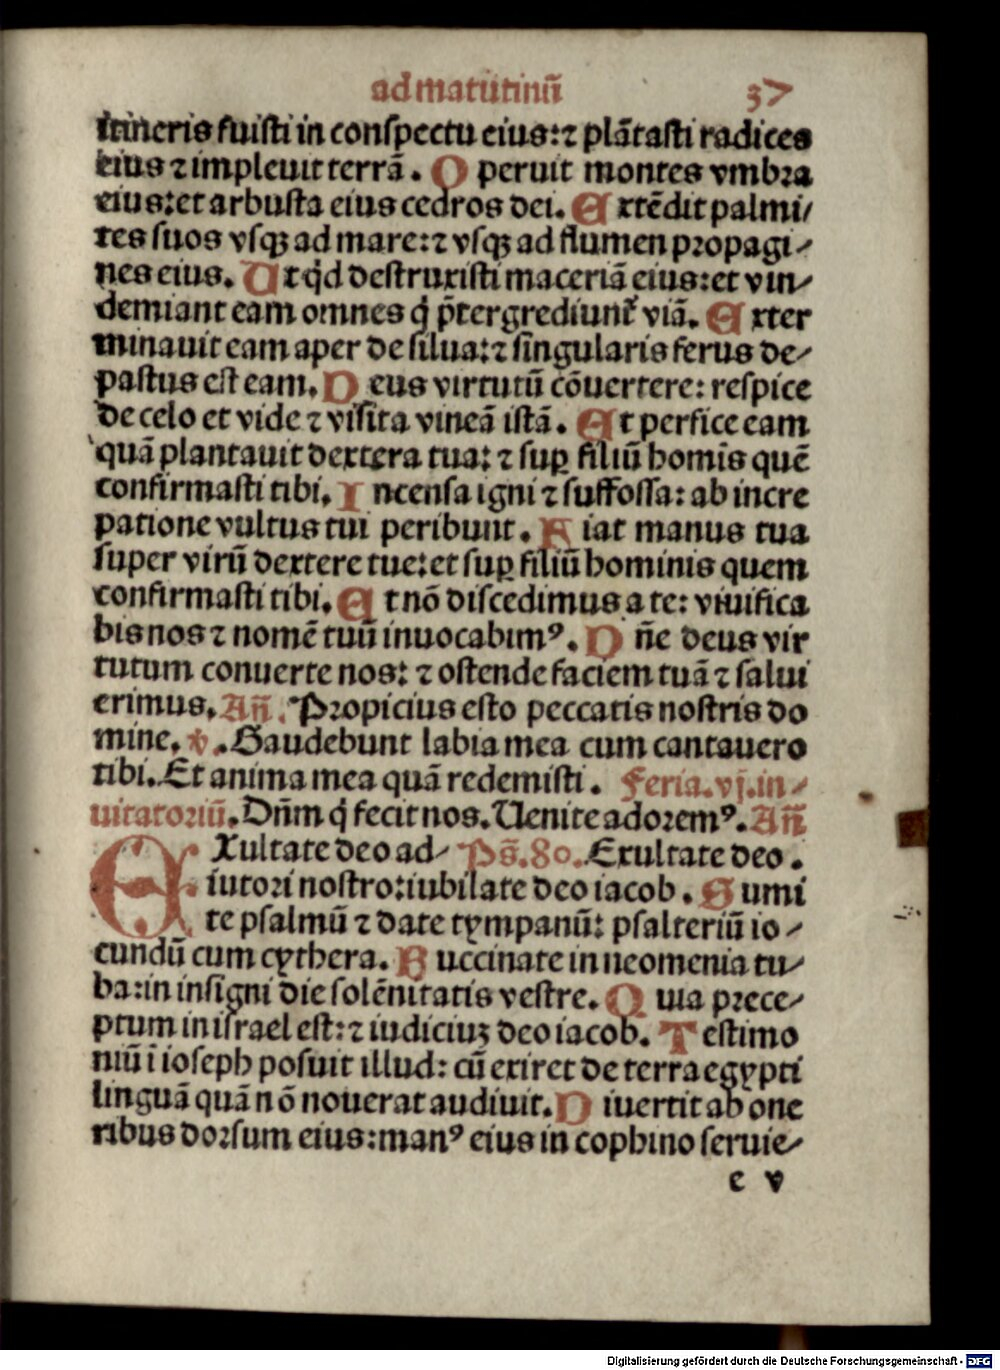 ad matutinū 37
itineris fuisti in conspectu eius: ⁊ plātasti radices
eius ⁊ impleuit terrā. O peruit montes vmbra
eius: et arbusta eius cedros dei. E xtēdit palmi/
tes suos vsqꝫ ad mare: ⁊ vsqꝫ ad flumen propagi/
nes eius. U t qd destruxisti maceriā eius: et vin/
demiant eam omnes q̇ p̄tergrediunt᷑ viā. E xter
minauit eam aper de silua: ⁊ singularis ferus de/
pastus est eam. D eus virtutū cōuertere: respice
de celo et vide ⁊ visita vineā istā. E t perfice eam
quā plantauit dextera tua: ⁊ suꝑ filiū homīs quē
confirmasti tibi. I ncensa igni ⁊ suffossa: ab incre
patione vultus tui peribunt. F iat manus tua
super virū dextere tue: et suꝑ filiū hominis quem
confirmasti tibi. E t nō discedimus a te: viuifica
bis nos ⁊ nomē tuū inuocabimꝰ. D n̄e deus vir
tutum conuerte nos: ⁊ ostende faciem tuā ⁊ salui
erimus. Añ. Propicius esto peccatis nostris do
mine. ℣. Gaudebunt labia mea cum cantauero
tibi. Et anima mea quā redemisti. Feria. vj. in/
uitatoriū. Dn̄m q̇ fecit nos. Uenite adoremꝰ. Añ
EXultate deo ad/ Ps̄. 80. Exultate deo.
iutori nostro: iubilate deo iacob. S umi
te psalmū ⁊ date tympanū: psalteriū io/
cundū cum cythera. B uccinate in neomenia tu/
ba: in insigni die solēnitatis vestre. Q uia prece/
ptum in israel est: ⁊ iudiciuꝫ deo iacob. T estimo
niū ī ioseph posuit illud: cū exiret de terra egypti
linguā quā nō nouerat audiuit. D iuertit ab one
ribus dorsum eius: manꝰ eius in cophino seruie/
e v
Digitalisierung gefördert durch die Deutsche Forschungsgemeinschaft - DFG